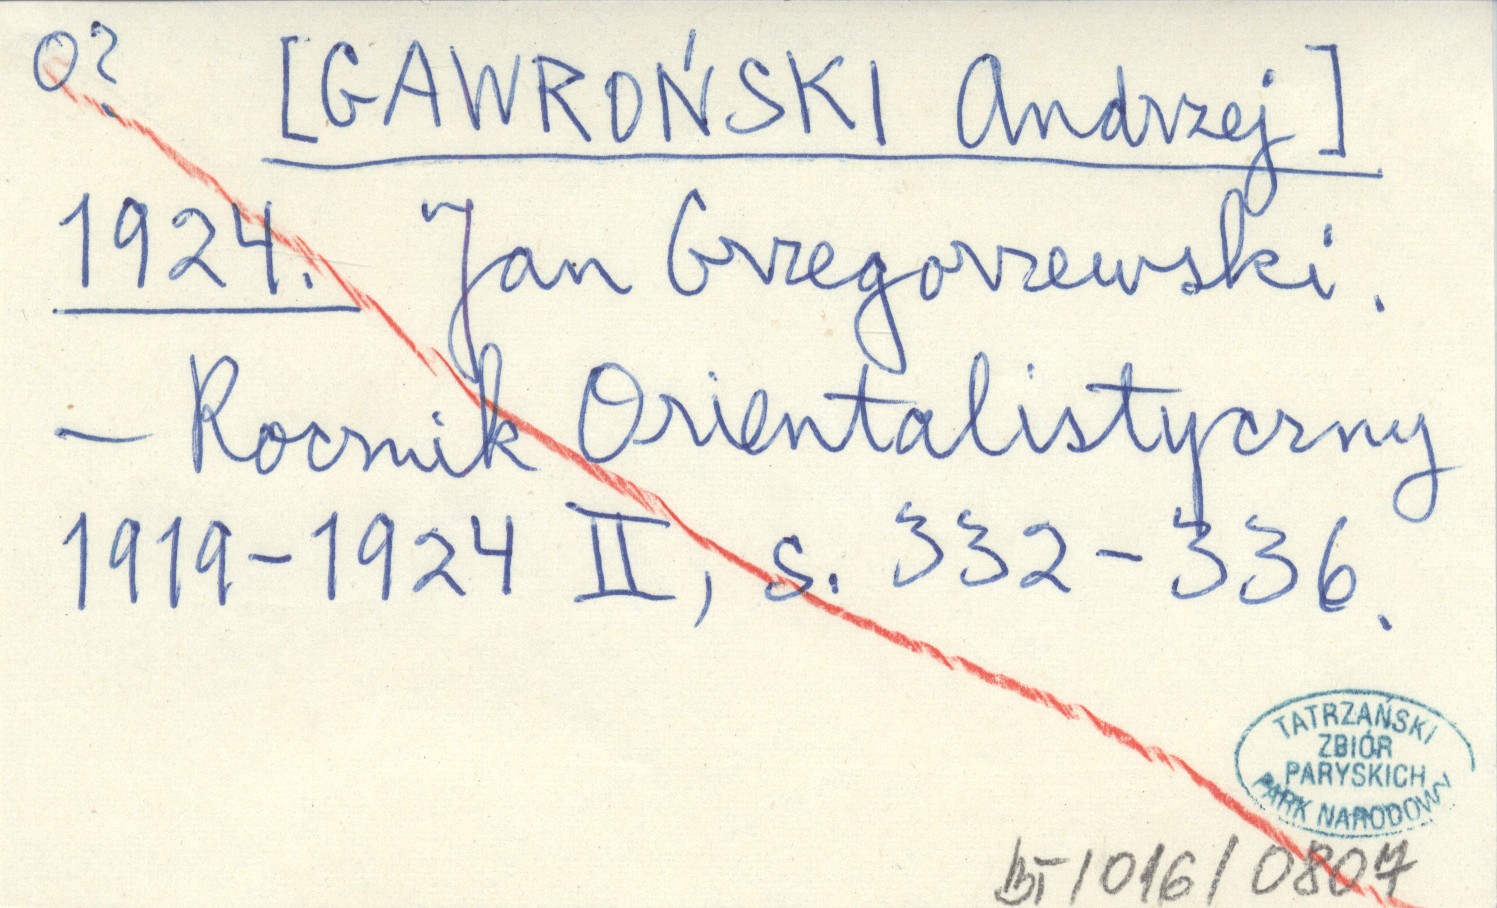 O?
[GAWROŃSKI Andrzej]
1924. Jan Grzegorzewski.
– Rocznik Orientalistyczny
1919–1924 II, s. 332–336.
TATRZAŃSKI
ZBIÓR
PARYSKICH
PARK NARODOWY
BT/016/0807